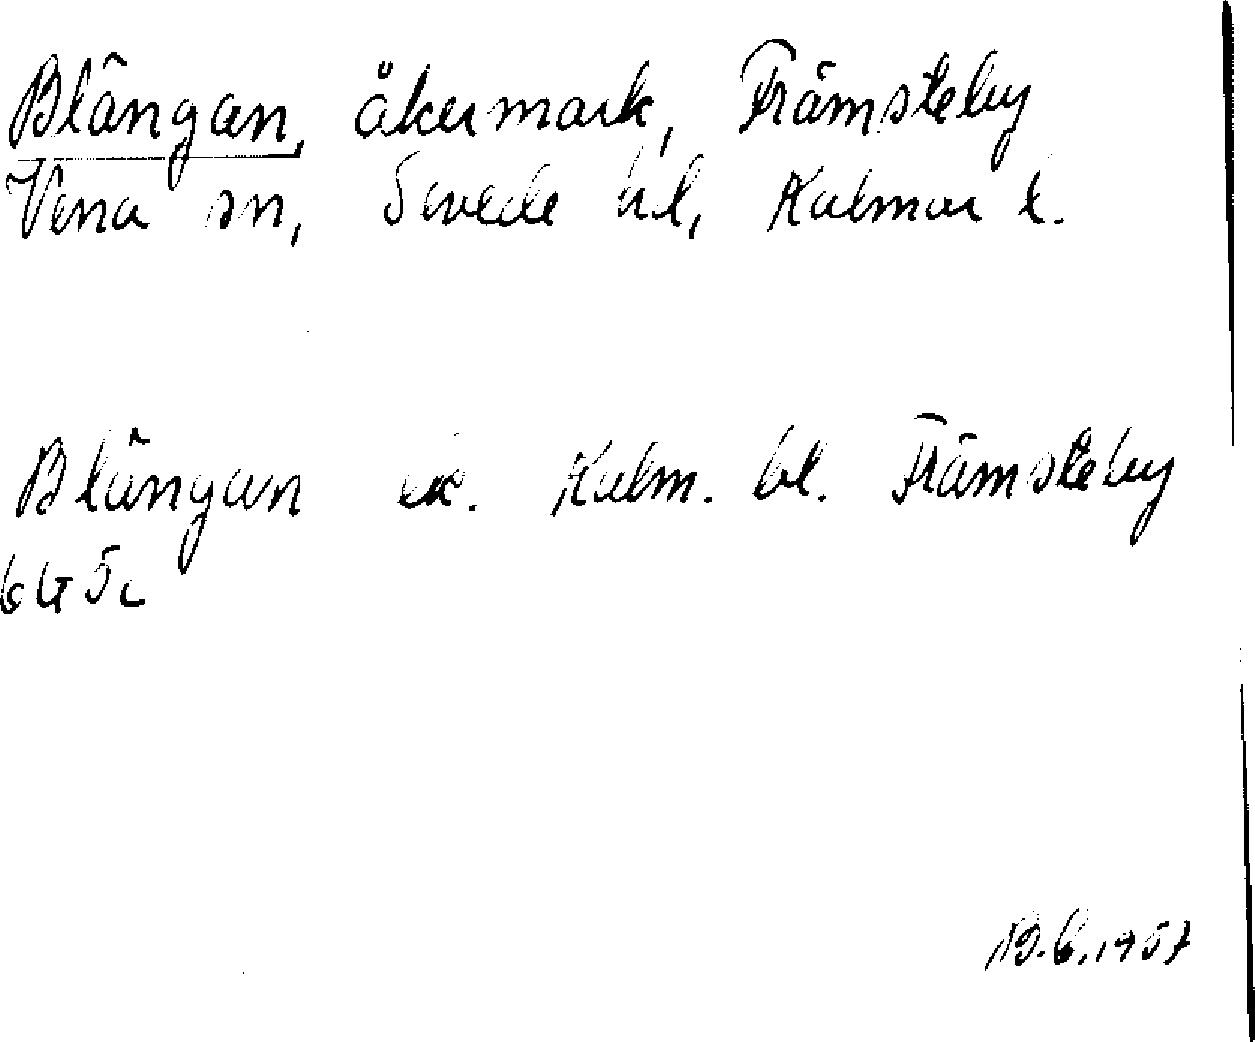 Blångan, åkermark, Främsteby
Vena sn, Sevede hd, Kalmar l.
Blångan ek. Kalm. bl. Främsteby
6G5c
B.E. 1957